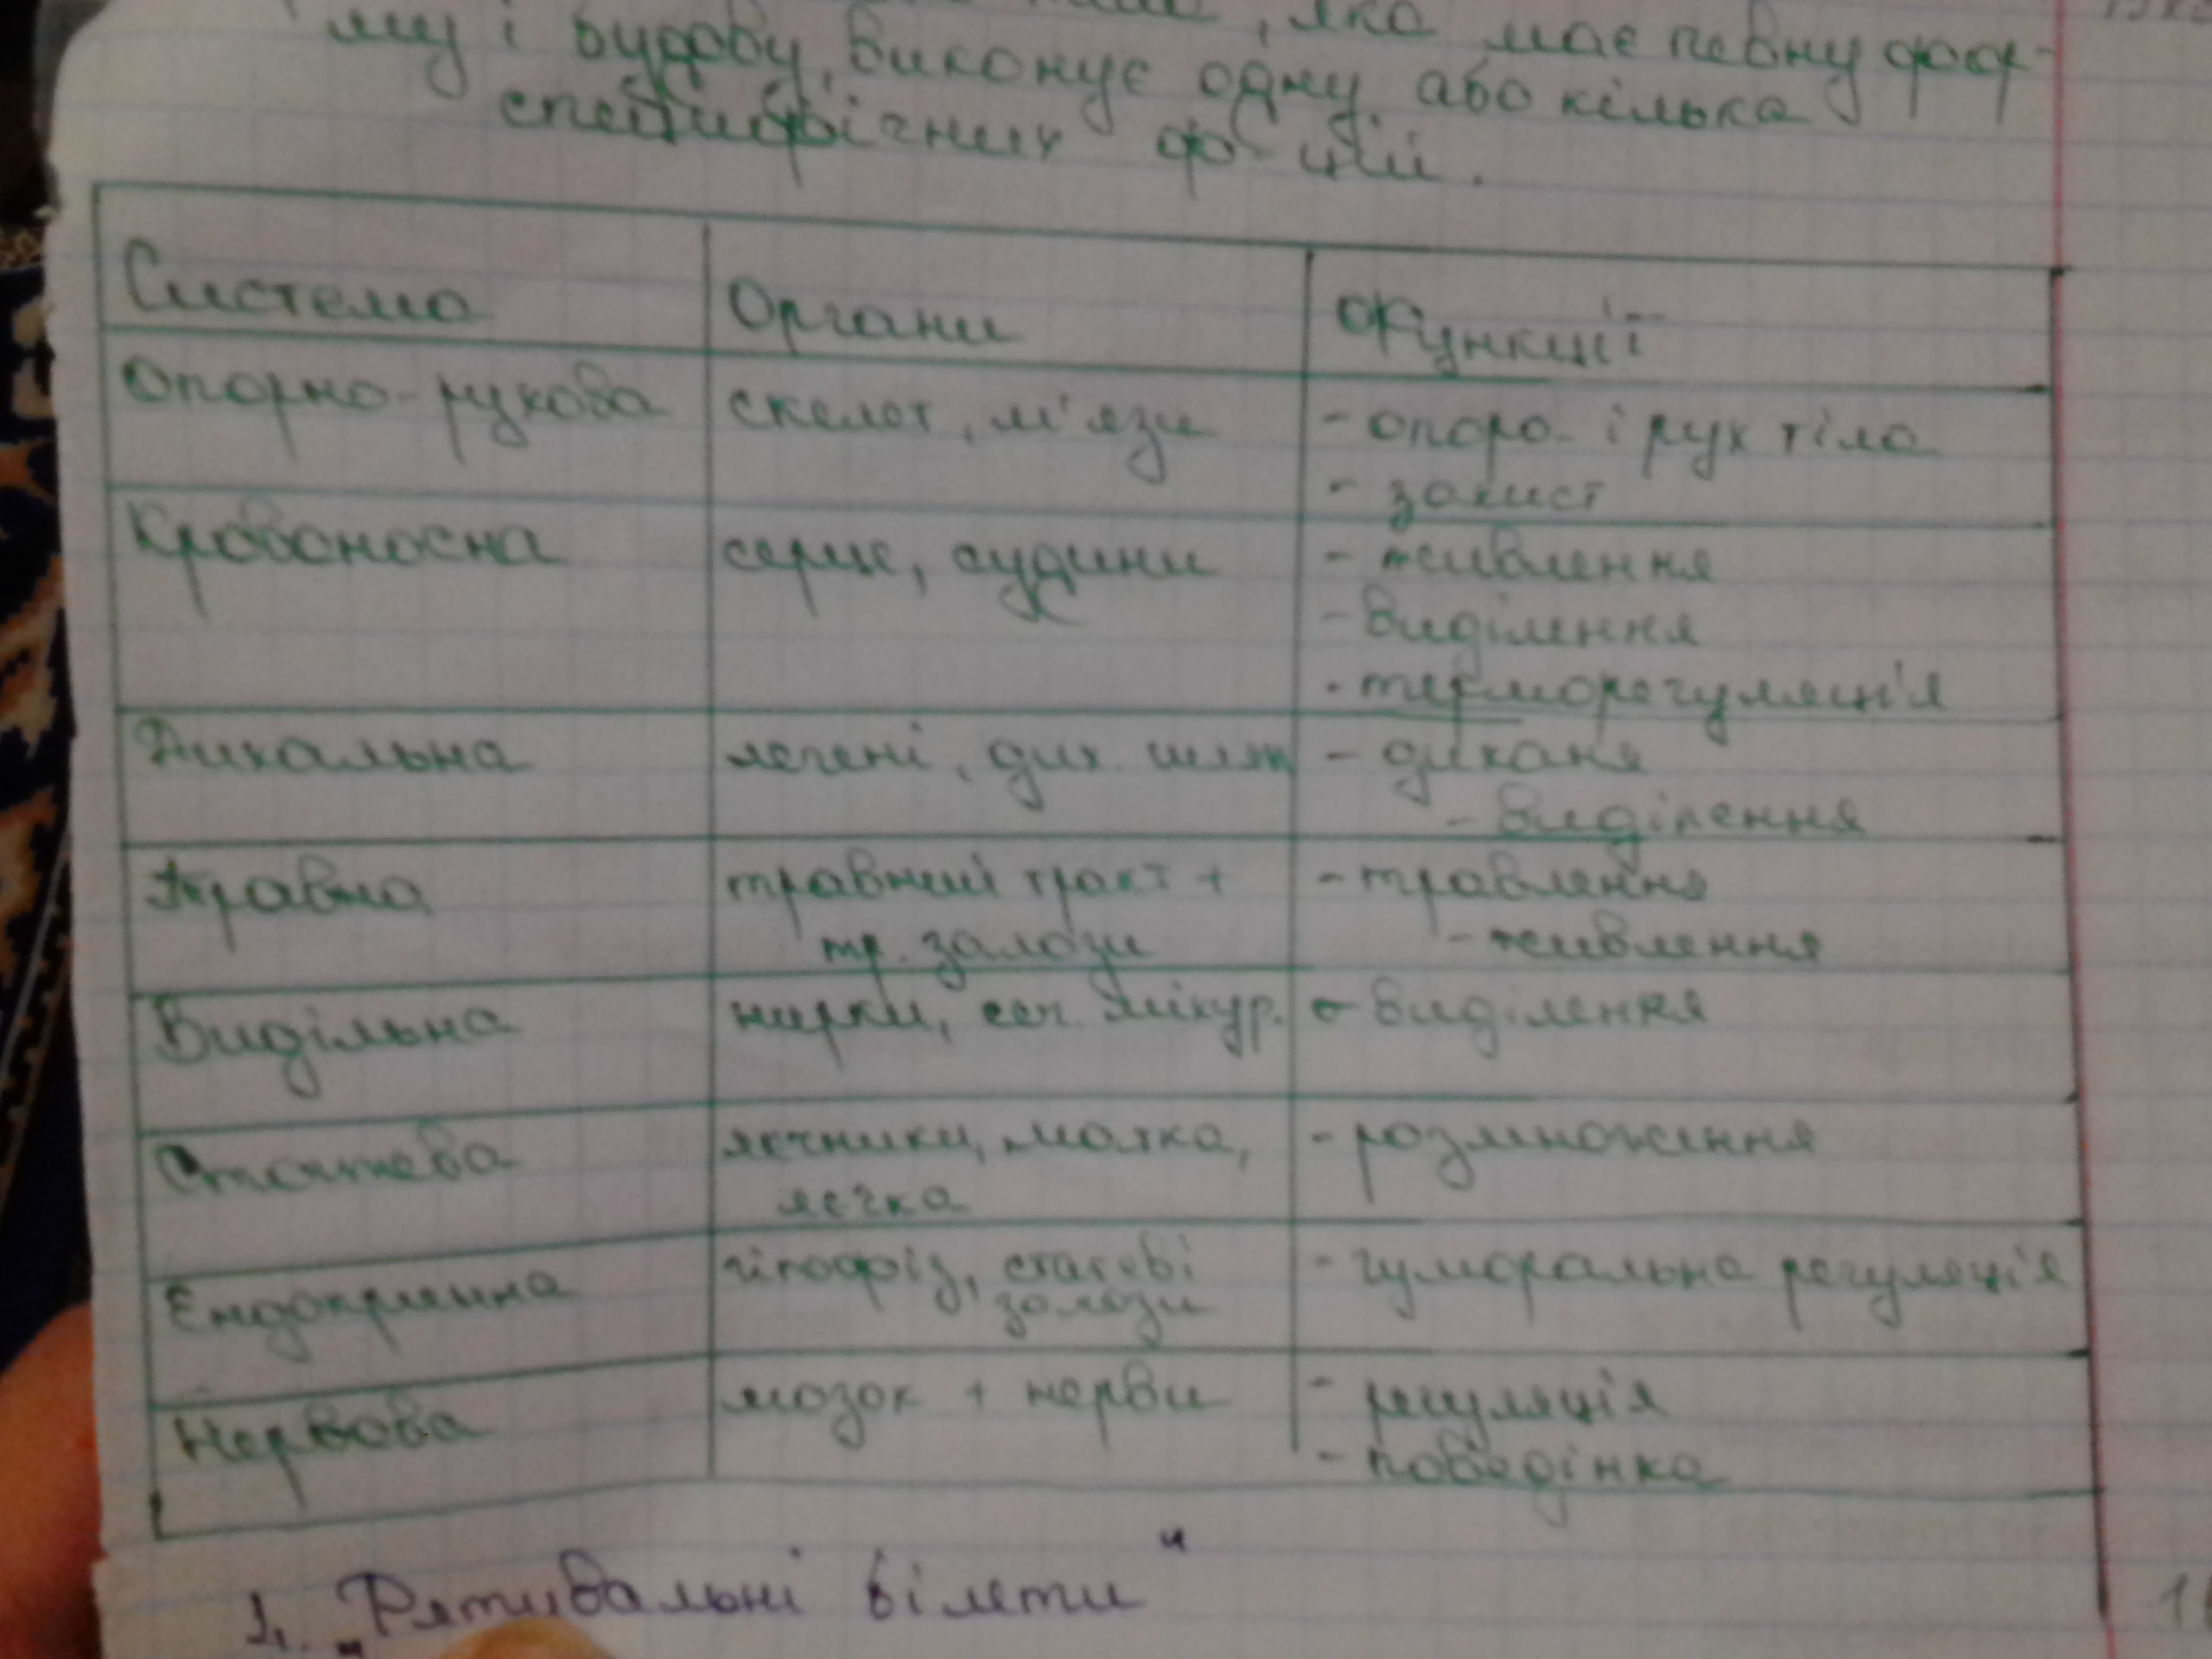 , яка має певну фор-
му і будову, виконує одну або кілька
специфічних ф-цій.
Система Органи Функції
Опорно-рухова скелет, м'язи - опора і рух тіла
- захист
Кровоносна серце, судини - живлення
- виділення
- терморегуляція
Дихальна легені, дих. шлях - диханя
- виділення
Травна травний тракт + - травлення
тр. залози - живлення
Видільна нирки, сеч. міхур. - виділення
Статева яєчники, матка, - розмноження
яєчка
Ендокринна гіпофіз, статеві - гуморальна регуляція
залози
Нервова мозок + нерви - регуляція
- поведінка
1. „Рятувальні білети"